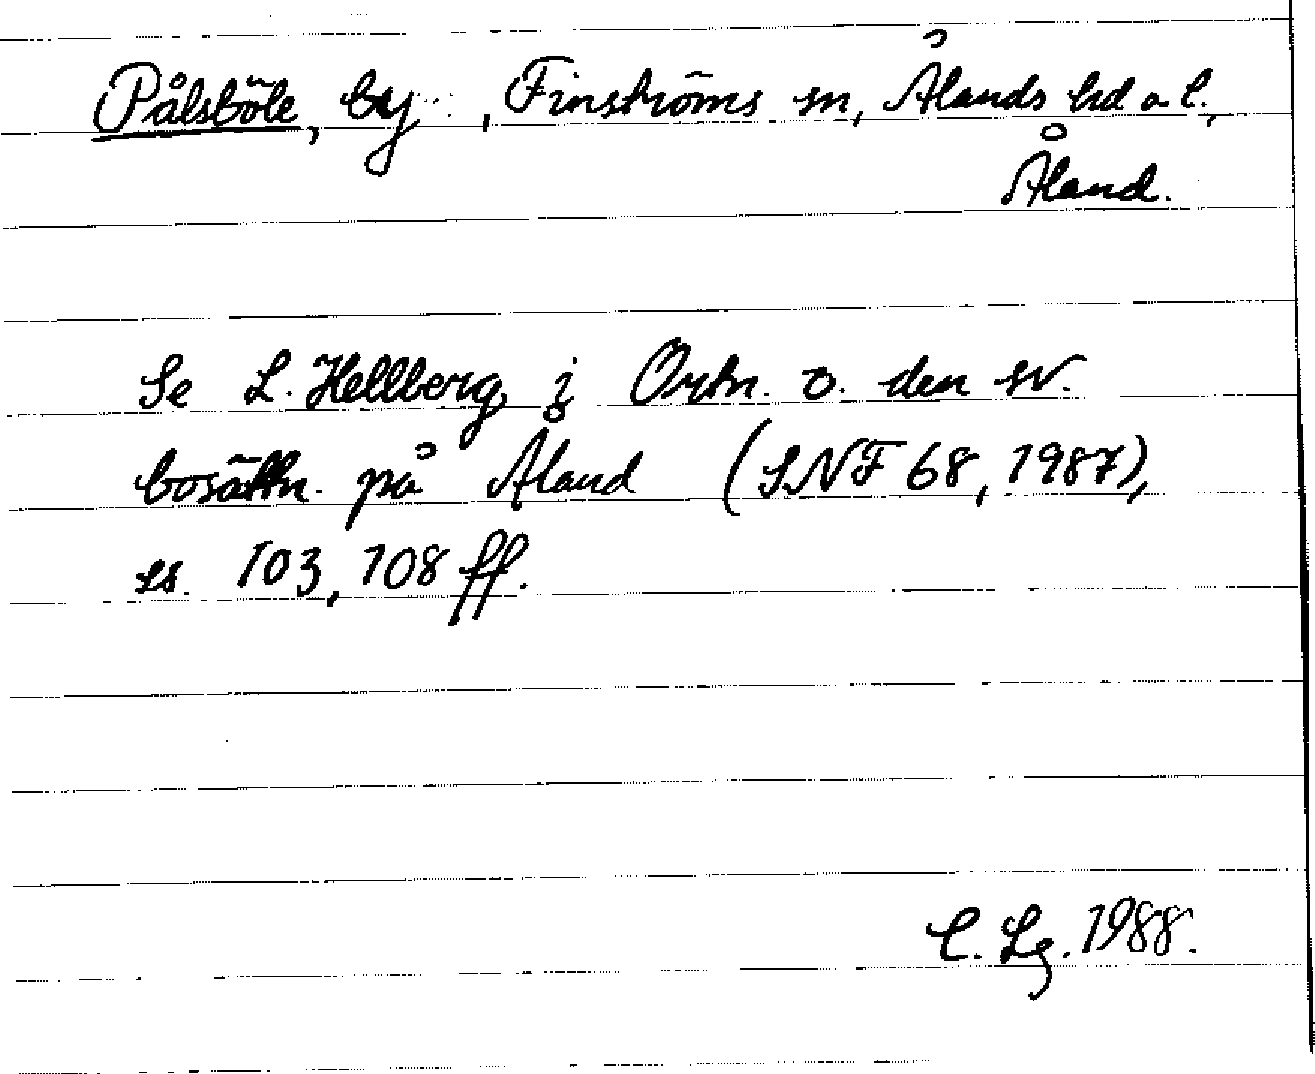 Pålsböle, by, Finströms sn, Ålands hd o l.,
Åland.
Se L. Hellberg i Ortn. o. den sv.
bosättn. på Åland (SNF 68, 1987),
ss. 103, 108 ff.
C. Lg. 1988.